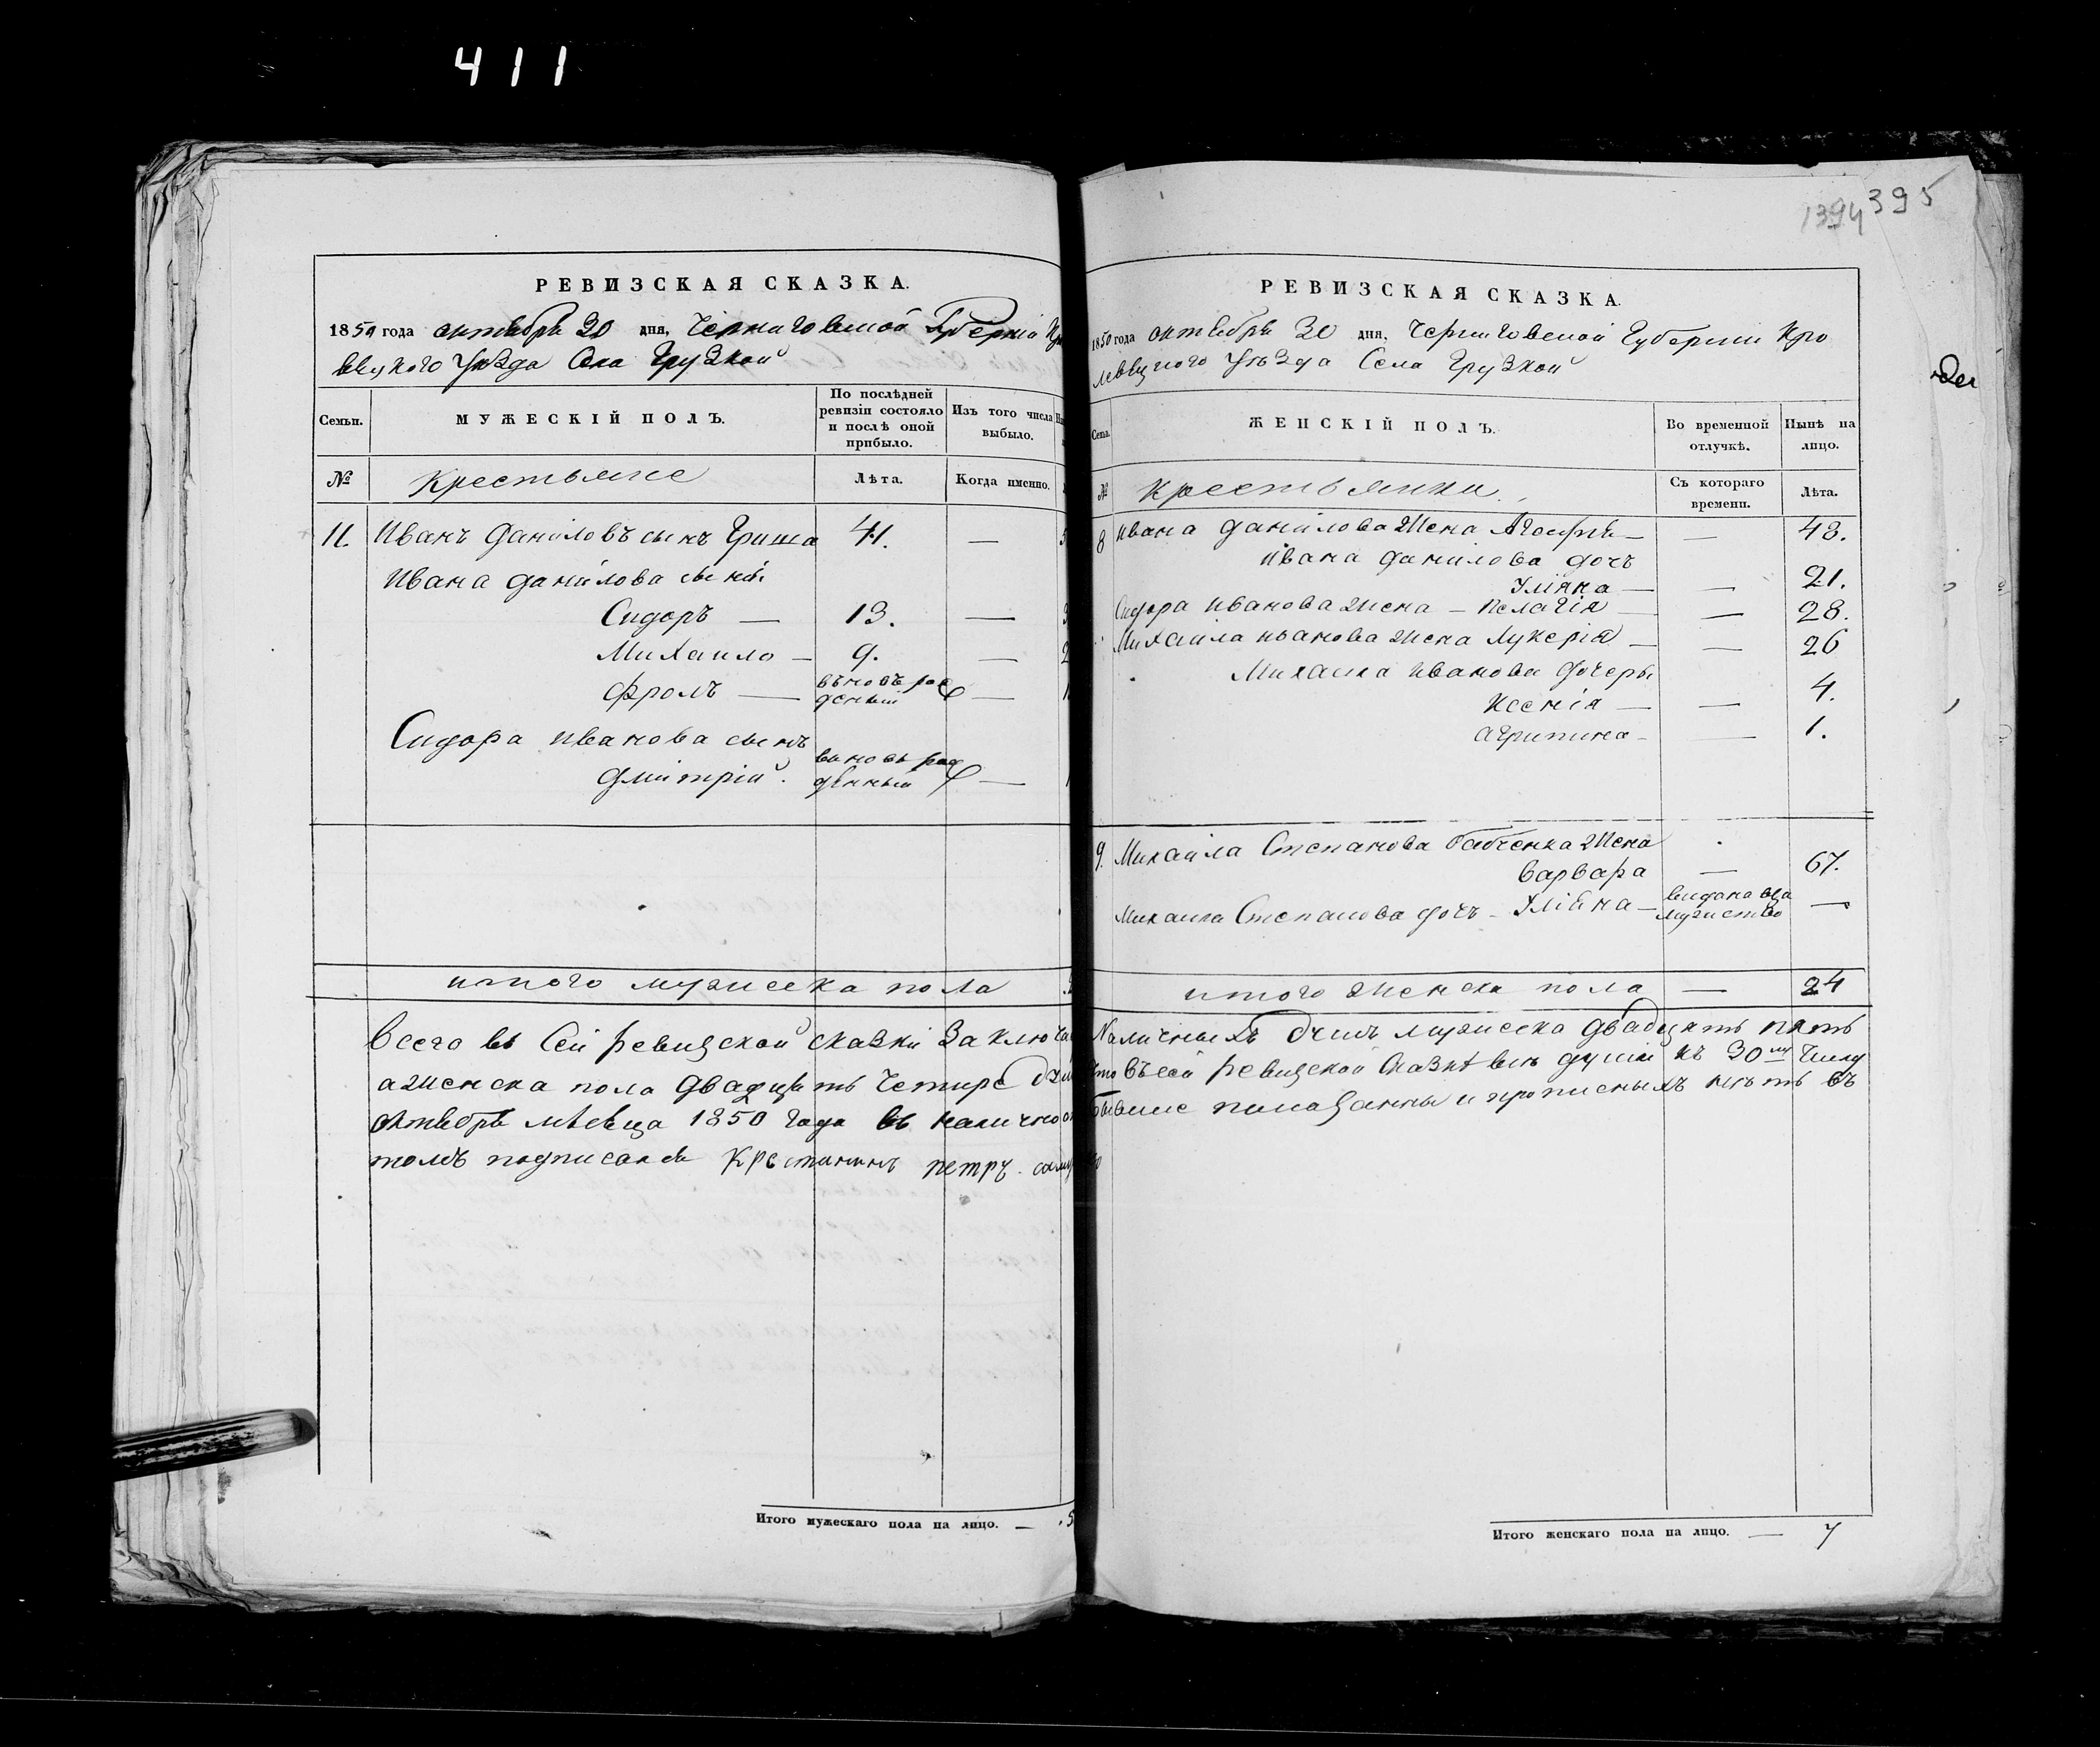 411
РЕВИЗСКАЯ СКАЗКА.
1850 года октября 30 дня, Черниговской Губерніи
Уезда Села Грузкой
Семьи.
МУЖЕСКІЙ ПОЛЪ.
По послѣдней
ревизіи состояло
и послѣ оной
прибыло.
Изъ того числа
выбыло.
№
Крестьяне
Лѣта.
Когда именно.
11. Иванъ Даниловъ сынъ Гриша 41. —
Ивана Данилова сыны
Сидоръ — 13. —
Михаило — 9. —
Фролъ — —
Сидора Иванова сынъ
Дмитрій. —
итого мужеска пола
Всего въ Сей ревизской сказки
а женска пола двадцять четире
октября 1850 года въ
подписался петръ
Итого мужескаго пола на лицо. — 5
1394 395
РЕВИЗСКАЯ СКАЗКА.
1850 года октября 30 дня, Черниговской Губерніи Кро
левецкого Уѣзда Села Грузкой
ЖЕНСКІЙ ПОЛЪ.
Во временной
отлучкѣ.
Нынѣ на
лицо.
№
Крестьянки.
Съ котораго
времени.
Лѣта.
8 Ивана Данилова жена — — 48.
Ивана Данилова дочь
Уліяна — — 21.
Сидора Иванова жена — Пелагія — — 28.
Михаила Иванова жена Лукерія — — 26
Михаила Иванова дочеры
Ксенія — — 4.
Агрипина — — 1.
9. Михаила Степанова Бабченка жена
Варвара — 67.
Михаила Степанова дочь — Уліяна — —
итого женска пола — 24
Наличныхъ душъ мужеска двадцять пять
въ сей ревизской къ 30му числу
и прописныхъ нетъ въ
Итого женскаго пола на лицо. — 7